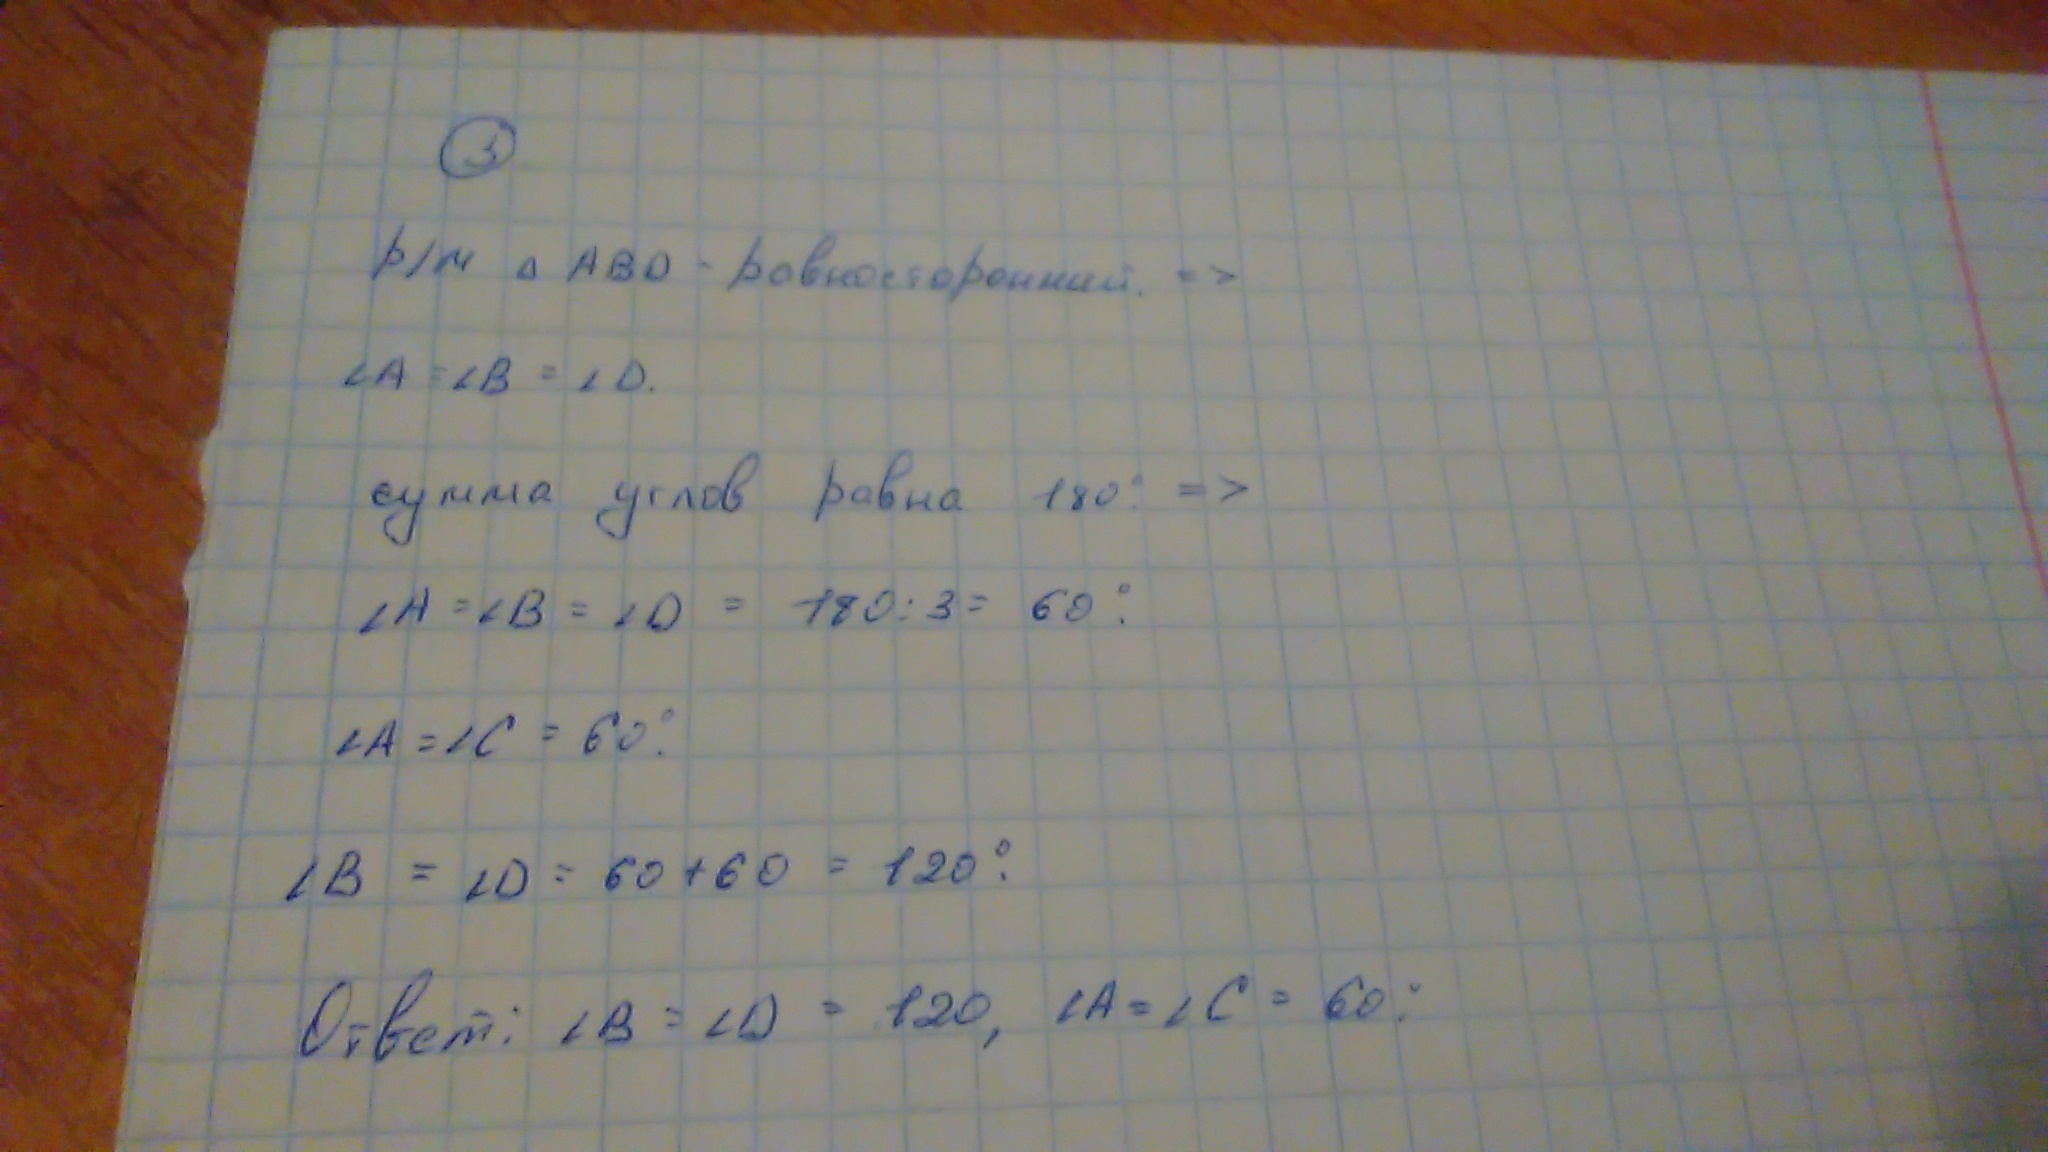 3
р/м △ ABD - равносторонний. =>
∠A = ∠B = ∠D.
сумма углов равна 180°. =>
∠A = ∠B = ∠D = 180:3 = 60°.
∠A = ∠C = 60°.
∠B = ∠D = 60+60 = 120°.
Ответ: ∠B = ∠D = 120, ∠A = ∠C = 60°.